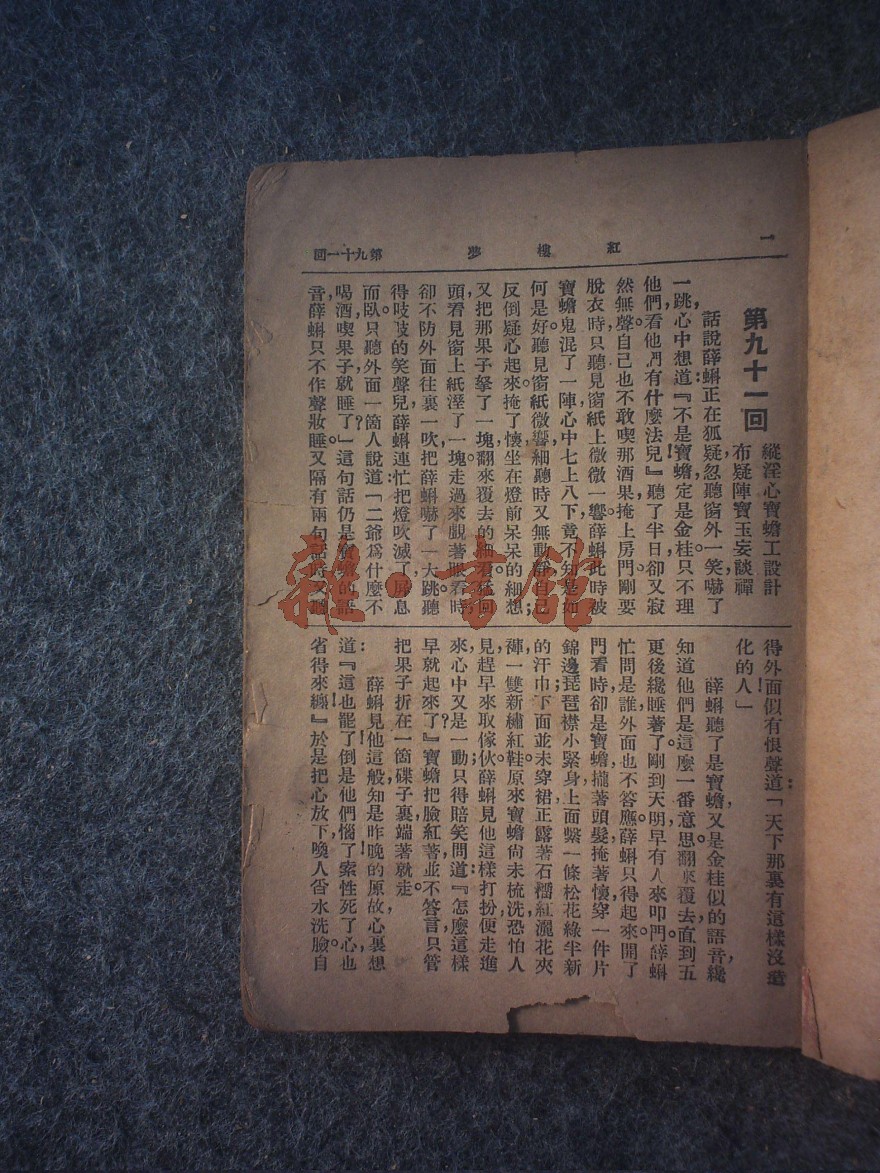 一
紅樓夢
第九十一回
第九十一回
縱淫心寶蟾工設計
布疑陣寶玉妄談禪
話說薛蝌正在狐疑,忽聽窗外一笑,嚇了
一跳,心中想道:『不是寶蟾,定是金桂。只不理
他們,看他們有什麼法兒!』聽了半日,卻又寂
然無聲。自己也不敢喫那酒果,掩上房門,剛要
脫衣時,只聽見窗紙上微微一響。薛蝌此時被
寶蟾鬼混了一陣,心中七上八下,竟不知是如
何是好。聽見窗紙微響,細聽時又無動靜,自己
反倒疑心起來,掩了懷,坐在燈前,呆呆的細想;
又把那果子拏了一塊,翻來覆去的細看。猛回
頭,看見窗上紙溼了一塊,走過來覷著眼看時,
卻不防外面往裏一吹,把薛蝌嚇了一大跳。聽
得吱吱的笑聲兒,薛蝌連忙把燈吹滅了,屏息
而臥。只聽外面一箇人說道:「二爺爲什麼不
喝酒喫果子,就睡了?」這句話仍是寶蟾的語
音,薛蝌只不作聲妝睡。又隔有兩句話時,又聽
得外面似有恨聲道:「天下那裏有這樣沒造
化的人!」
薛蝌聽了是寶蟾,又是金桂似的語音,纔
知道他們是這麼一番意思。翻來覆去,直到五
更後纔睡著了。剛到天明,早有人來叩門。薛蝌
忙問是誰,外面也不答應。薛蝌只得起來,開了
門看時,卻是寶蟾,攏著頭髮,掩著懷,穿一件片
錦邊琵琶襟小緊身,上面繫一條松花綠半新
的汗巾,下面並未穿裙,正露著石榴紅灑花夾
褲,一雙新繡紅鞋。原來寶蟾尚未梳洗,恐怕人
見,趕早來取傢伙。薛蝌見他這樣打扮便走進
來,心中又是一動,只得賠笑問道:『怎麼這樣
早就起來了?』寶蟾把臉紅著,並不答言,只管
把果子折在一箇碟子裏,端著就走。
薛蝌見他這般,知是昨晚的原故,心裏想
道:『這也罷了。倒是他們惱了,索性死了心,也
省得來纏。』於是把心放下,喚人舀水洗臉。自
雜·書館